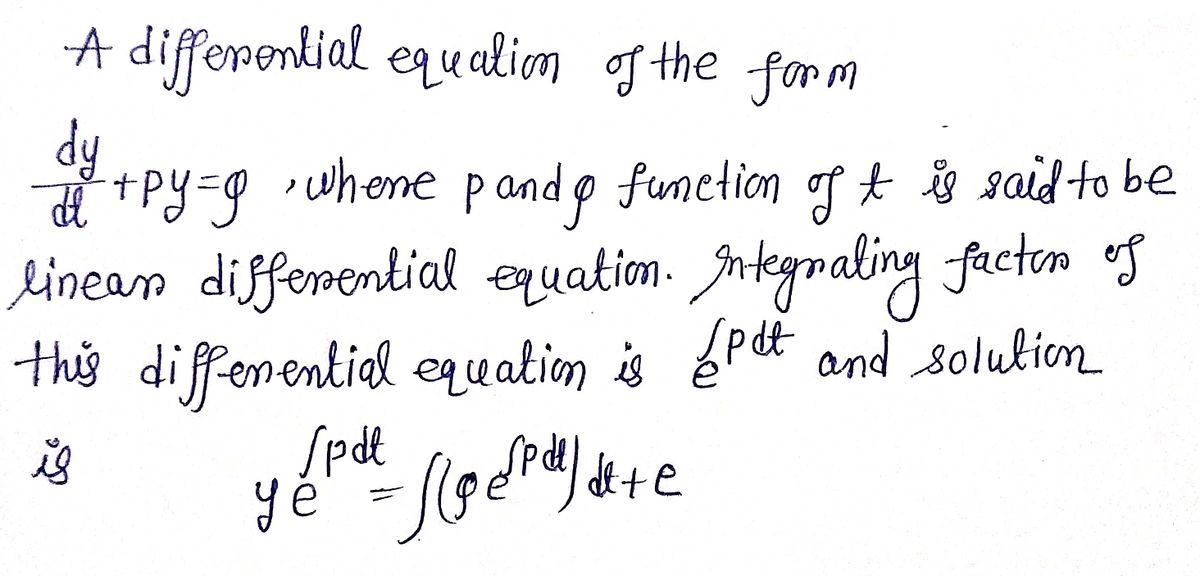 A differential equation of the form
dy/dt + py = φ, where p and φ function of t is said to be
linear differential equation. Integrating factor of
this differential equation is e^∫pdt and solution
is y e^∫pdt = ∫(φ e^∫pdt) dt + c